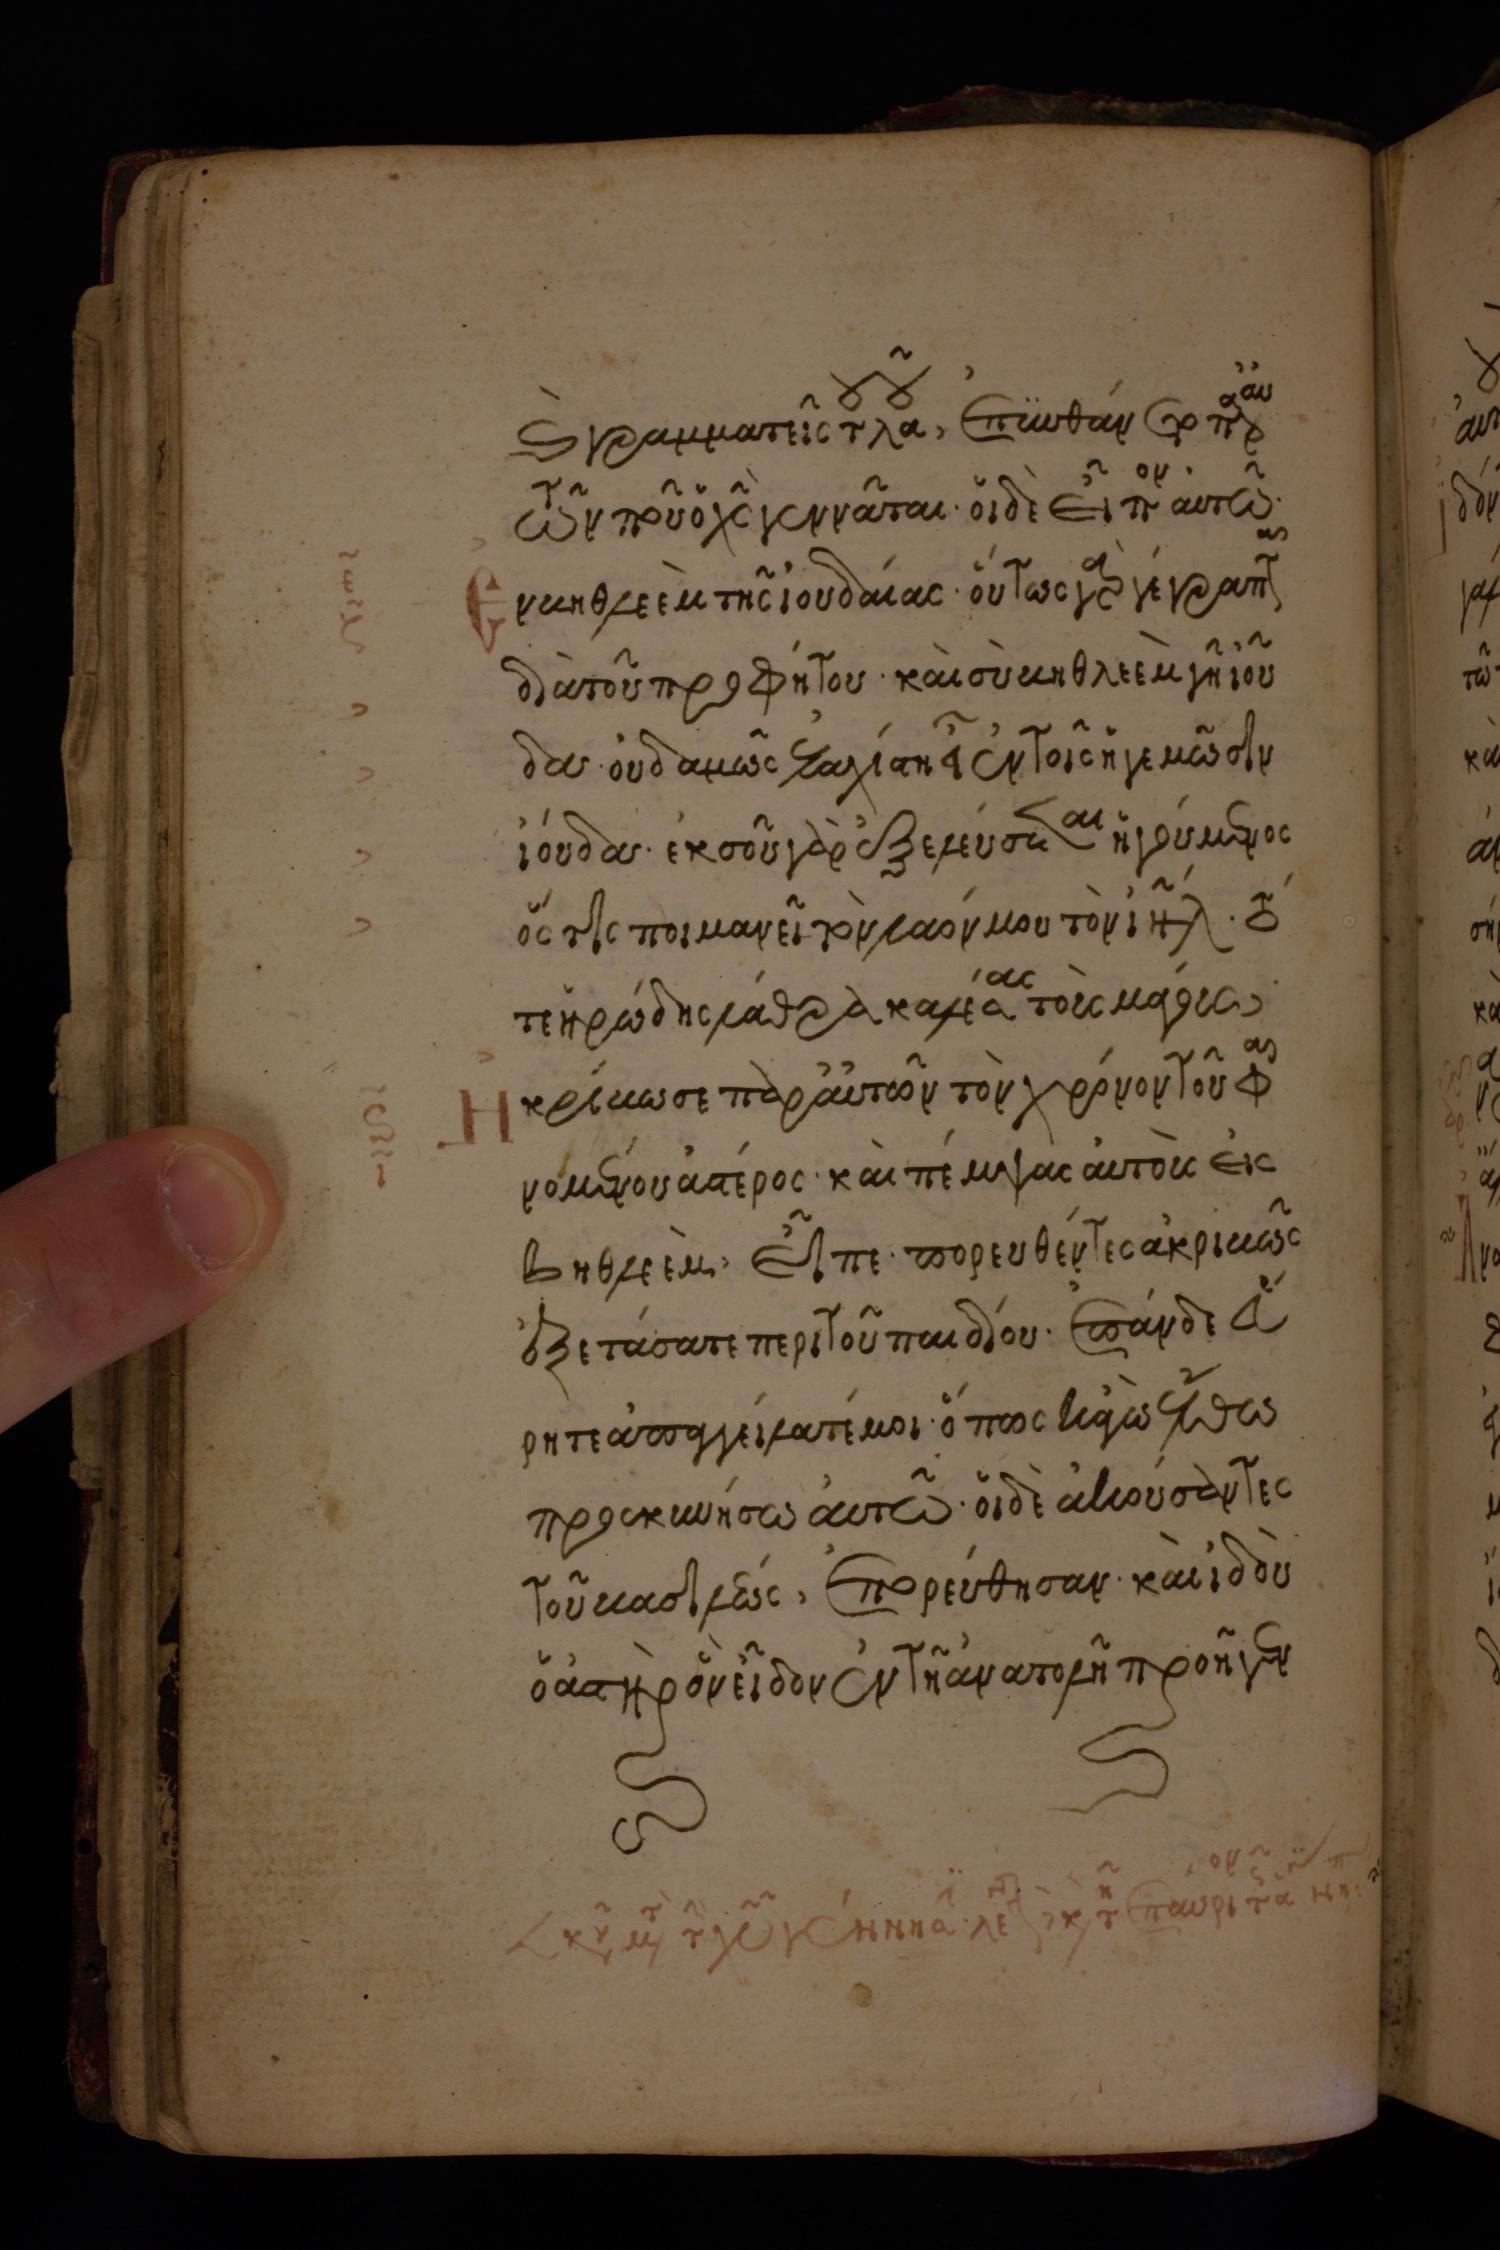 καὶ γραμματεῖς τοῦ λαοῦ, ἐπυνθάνετο παρ' αὐ
τῶν ποῦ ὁ χς γεννᾶται· οἱ δὲ εἶπον αὐτῶ·
Ἐν βηθλεὲμ τῆς ἰουδαίας· οὕτως γὰρ γέγραπται
διὰ τοῦ προφήτου· καὶ σὺ βηθλεὲμ γῆ ἰού
δα· οὐδαμῶς ἐλαχίστη εἶ ἐν τοῖς ἡγεμῶσιν
ἰούδα· ἐκ σοῦ γὰρ ἐξελεύσεται ἡγούμενος
ὅστις ποιμανεῖ τὸν λαόν μου τὸν ιηλ· τό
τε ἡρώδης λάθρα καλέσας τοὺς μάγους,
Ἠκρίβωσε παρ' αὐτῶν τὸν χρόνον τοῦ φαι
νομένου ἀστέρος· καὶ πέμψας αὐτοὺς εἰς
βηθλεὲμ, εἶπε· πορευθέντες ἀκριβῶς
ἐξετάσατε περὶ τοῦ παιδίου· ἐπὰν δὲ εὕ
ρητε ἀπαγγείλατέ μοι· ὅπως κἀγὼ ἐλθὼν
προσκυνήσω αὐτῶ· οἱ δὲ ἀκούσαντες
τοῦ βασιλέως, ἐπορεύθησαν· καὶ ἰδοὺ
ὁ ἀστὴρ ὃν εἶδον ἐν τῆ ἀνατολῆ προῆγεν